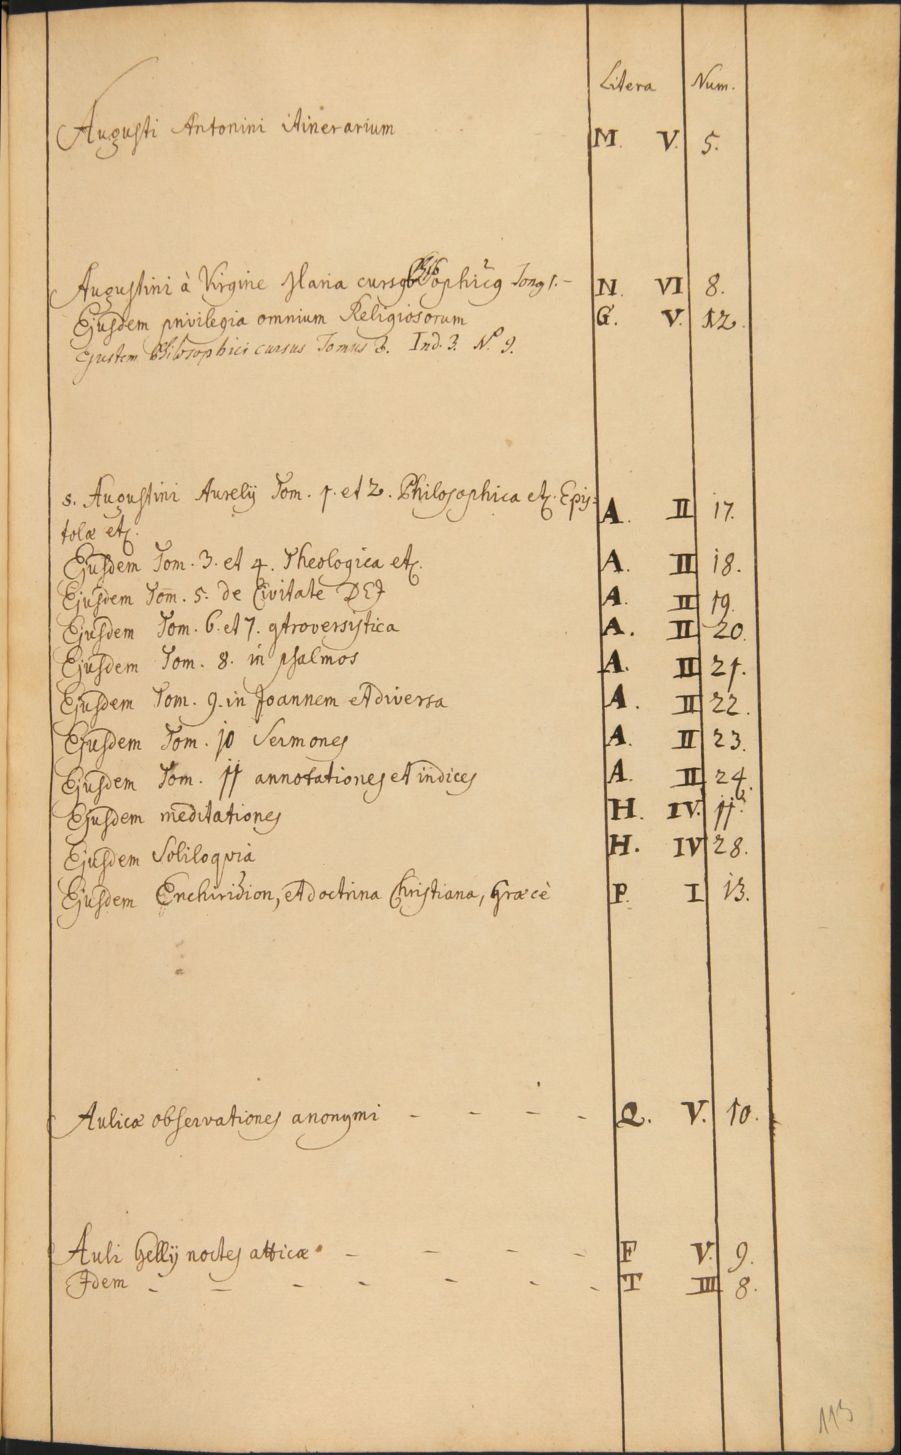 Litera Num.
Augusti Antonini itinerarium M. V. 5.
Augustini à Virgine Maria cursq Tomq 1. N. VI 8.
Ejusdem privilegia omnium Religiosorum G. V. 12.
Ejusdem Philosophici cursus Tomus 3. Ind. 3. N. 9.
S. Augustini Aurelij Tom. 1. et 2. Philosophica etc. Epis: A. II 17.
tolæ etc.
Ejusdem Tom. 3. et 4. Theologica etc. A. II 18.
Ejusdem Tom. 5. de Civitate DEJ A. II 19.
Ejusdem Tom. 6. et 7. qtroversistica A. II 20.
Ejusdem Tom. 8. in psalmos A. II 21.
Ejusdem Tom. 9. in Joannem et diversa A. II 22.
Ejusdem Tom. jo Sermones A. II 23.
Ejusdem Tom. jj annotationes et indices A. II 24.
Ejusdem meditationes H. IV. jj.
Ejusdem Soliloquia H. IV 28.
Ejusdem Enchiridion, et doctrina Christiana, Græcè P. I 13.
Aulicæ observationes anonymi - - - - Q. V. 10.
Auli Gellij noctes atticæ - - - - F V. 9.
Jdem - - - - - - T III 8.
113